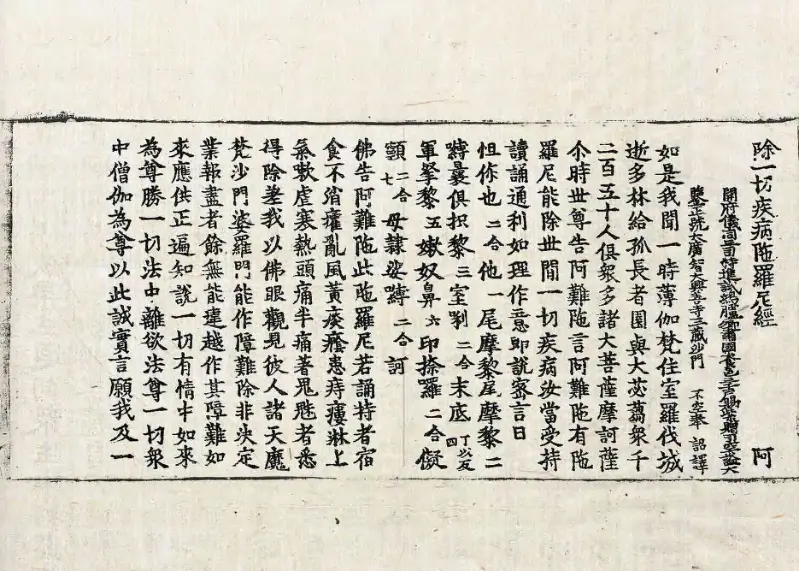 除一切疾病陁羅尼經 阿
開府儀同三司特進試鴻臚卿肅國公食邑三千户賜紫贈司空謚大
鑒正號大廣智大興善寺三藏沙門 不空奉 詔譯
如是我聞一時薄伽梵住室羅伐城
逝多林給孤長者園與大苾蒭衆千
二百五十人俱衆多諸大菩薩摩訶薩
尒時世尊告阿難陁言阿難陁有陁
羅尼能除世間一切疾病汝當受持
讀誦通利如理作意即說密言曰
怛你也二合他一尾摩黎尾摩黎二
嚩曩俱枳黎三室唎二合末底丁以反四
軍拏黎五嫰奴鼻六印捺羅二合儗
顊二合七母隸娑嚩二合訶
佛告阿難陁此陁羅尼若誦持者宿
食不消癨亂風黃痰癊患痔瘻淋上
氣欬虐寒熱頭痛半痛著鬼魅者悉
得除差我以佛眼觀見彼人諸天魔
梵沙門婆羅門能作障難除非決定
業報盡者餘無能違越作其障難如
來應供正遍知說一切有情中如來
為尊勝一切法中離欲法尊一切衆
中僧伽為尊以此誠實言願我及一